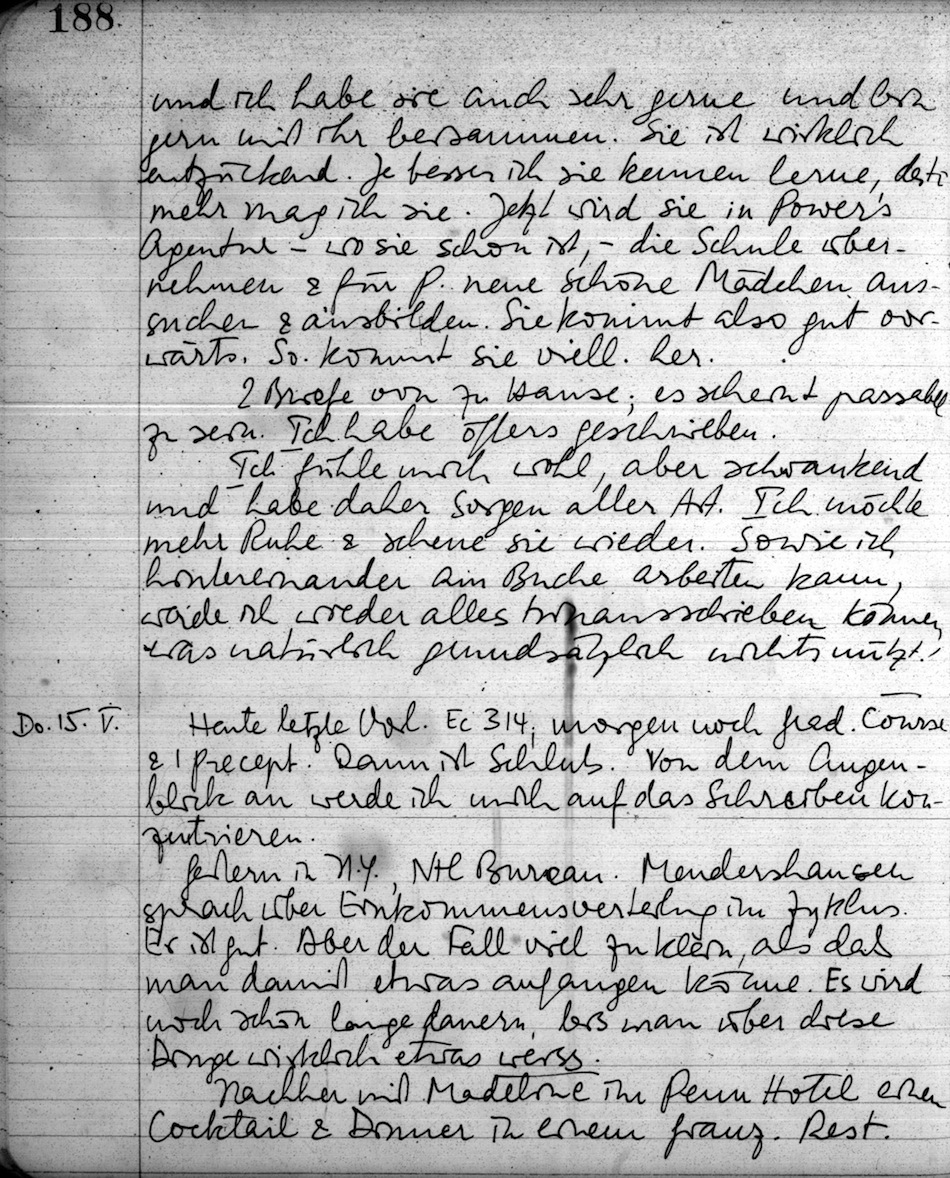 188
und ich habe sie auch sehr gerne und bin
gern mit ihr beisammen. Sie ist wirklich
entzückend. Je besser ich sie kennen lerne, desto
mehr mag ich sie. Jetzt wird sie in Power's
Agentur – wo sie schon ist, – die Schule über-
nehmen & für P. neue schöne Mädchen aus-
suchen & ausbilden. Sie kommt also gut vor-
wärts. So kommt sie viell. her.
2 Briefe von zu Hause; es scheint passabel
zu sein. Ich habe öfters geschrieben.
Ich fühle mich wohl, aber schwankend
und habe daher Sorgen aller Art. Ich möchte
mehr Ruhe & scheue sie wieder. Sowie ich
hintereinander am Buche arbeiten kann,
werde ich wieder alles hinausschieben können,
was natürlich grundsätzlich nichts nützt!
Do. 15. V. Heute letzte Vorl. Ec 314; morgen noch grad. Course
& 1 precept. Dann ist Schluss. Von dem Augen-
blick an werde ich mich auf das Schreiben kon-
zentrieren.
Gestern in N.Y., Ntl Bureau. Mendershausen
sprach über Einkommensverteilung im Zyklus.
Er ist gut. Aber der Fall viel zu klein, als dass
man damit etwas anfangen könne. Es wird
noch schön lange dauern, bis man über diese
Dinge wirklich etwas weiss.
Nachher mit Madeleine im Penn Hotel einen
Cocktail & Dinner in einem franz. Rest.